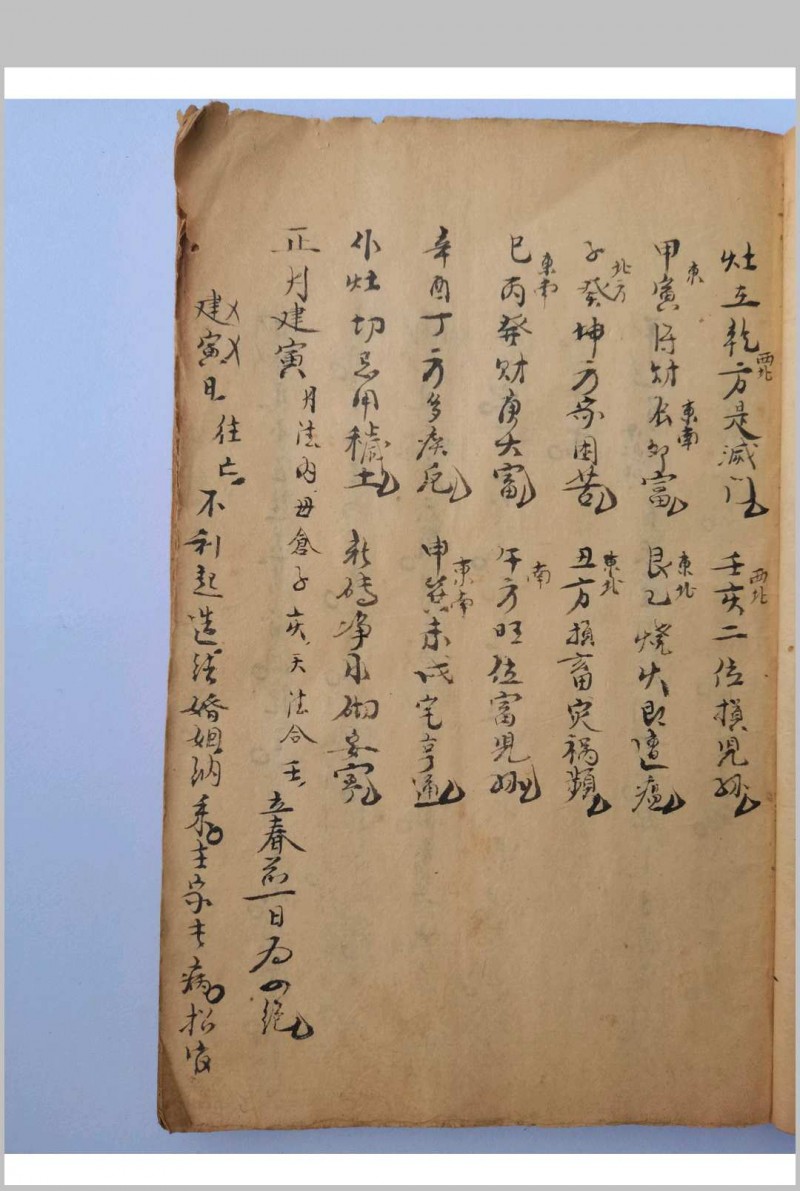 灶立乾方是滅门 壬亥二位損児孫
西北 西北
甲寅得财辰卯富 艮乙燒火即遭瘟
東 東南 東北
子癸坤方家困苦 丑方損畜灾禍頻
北方 東北
巳丙發财庚大富 午方旺位富児孫
東南 南
辛酉丁方多疾厄 申巽未戌宅亨通
東南
作灶切忌用穢土 新磚净水砌安寧
正月建寅 月法内 毋倉子亥 天法合壬 立春前一日为四絶
建寅日 往亡 不利起造结婚姻纳采 主家长病招官